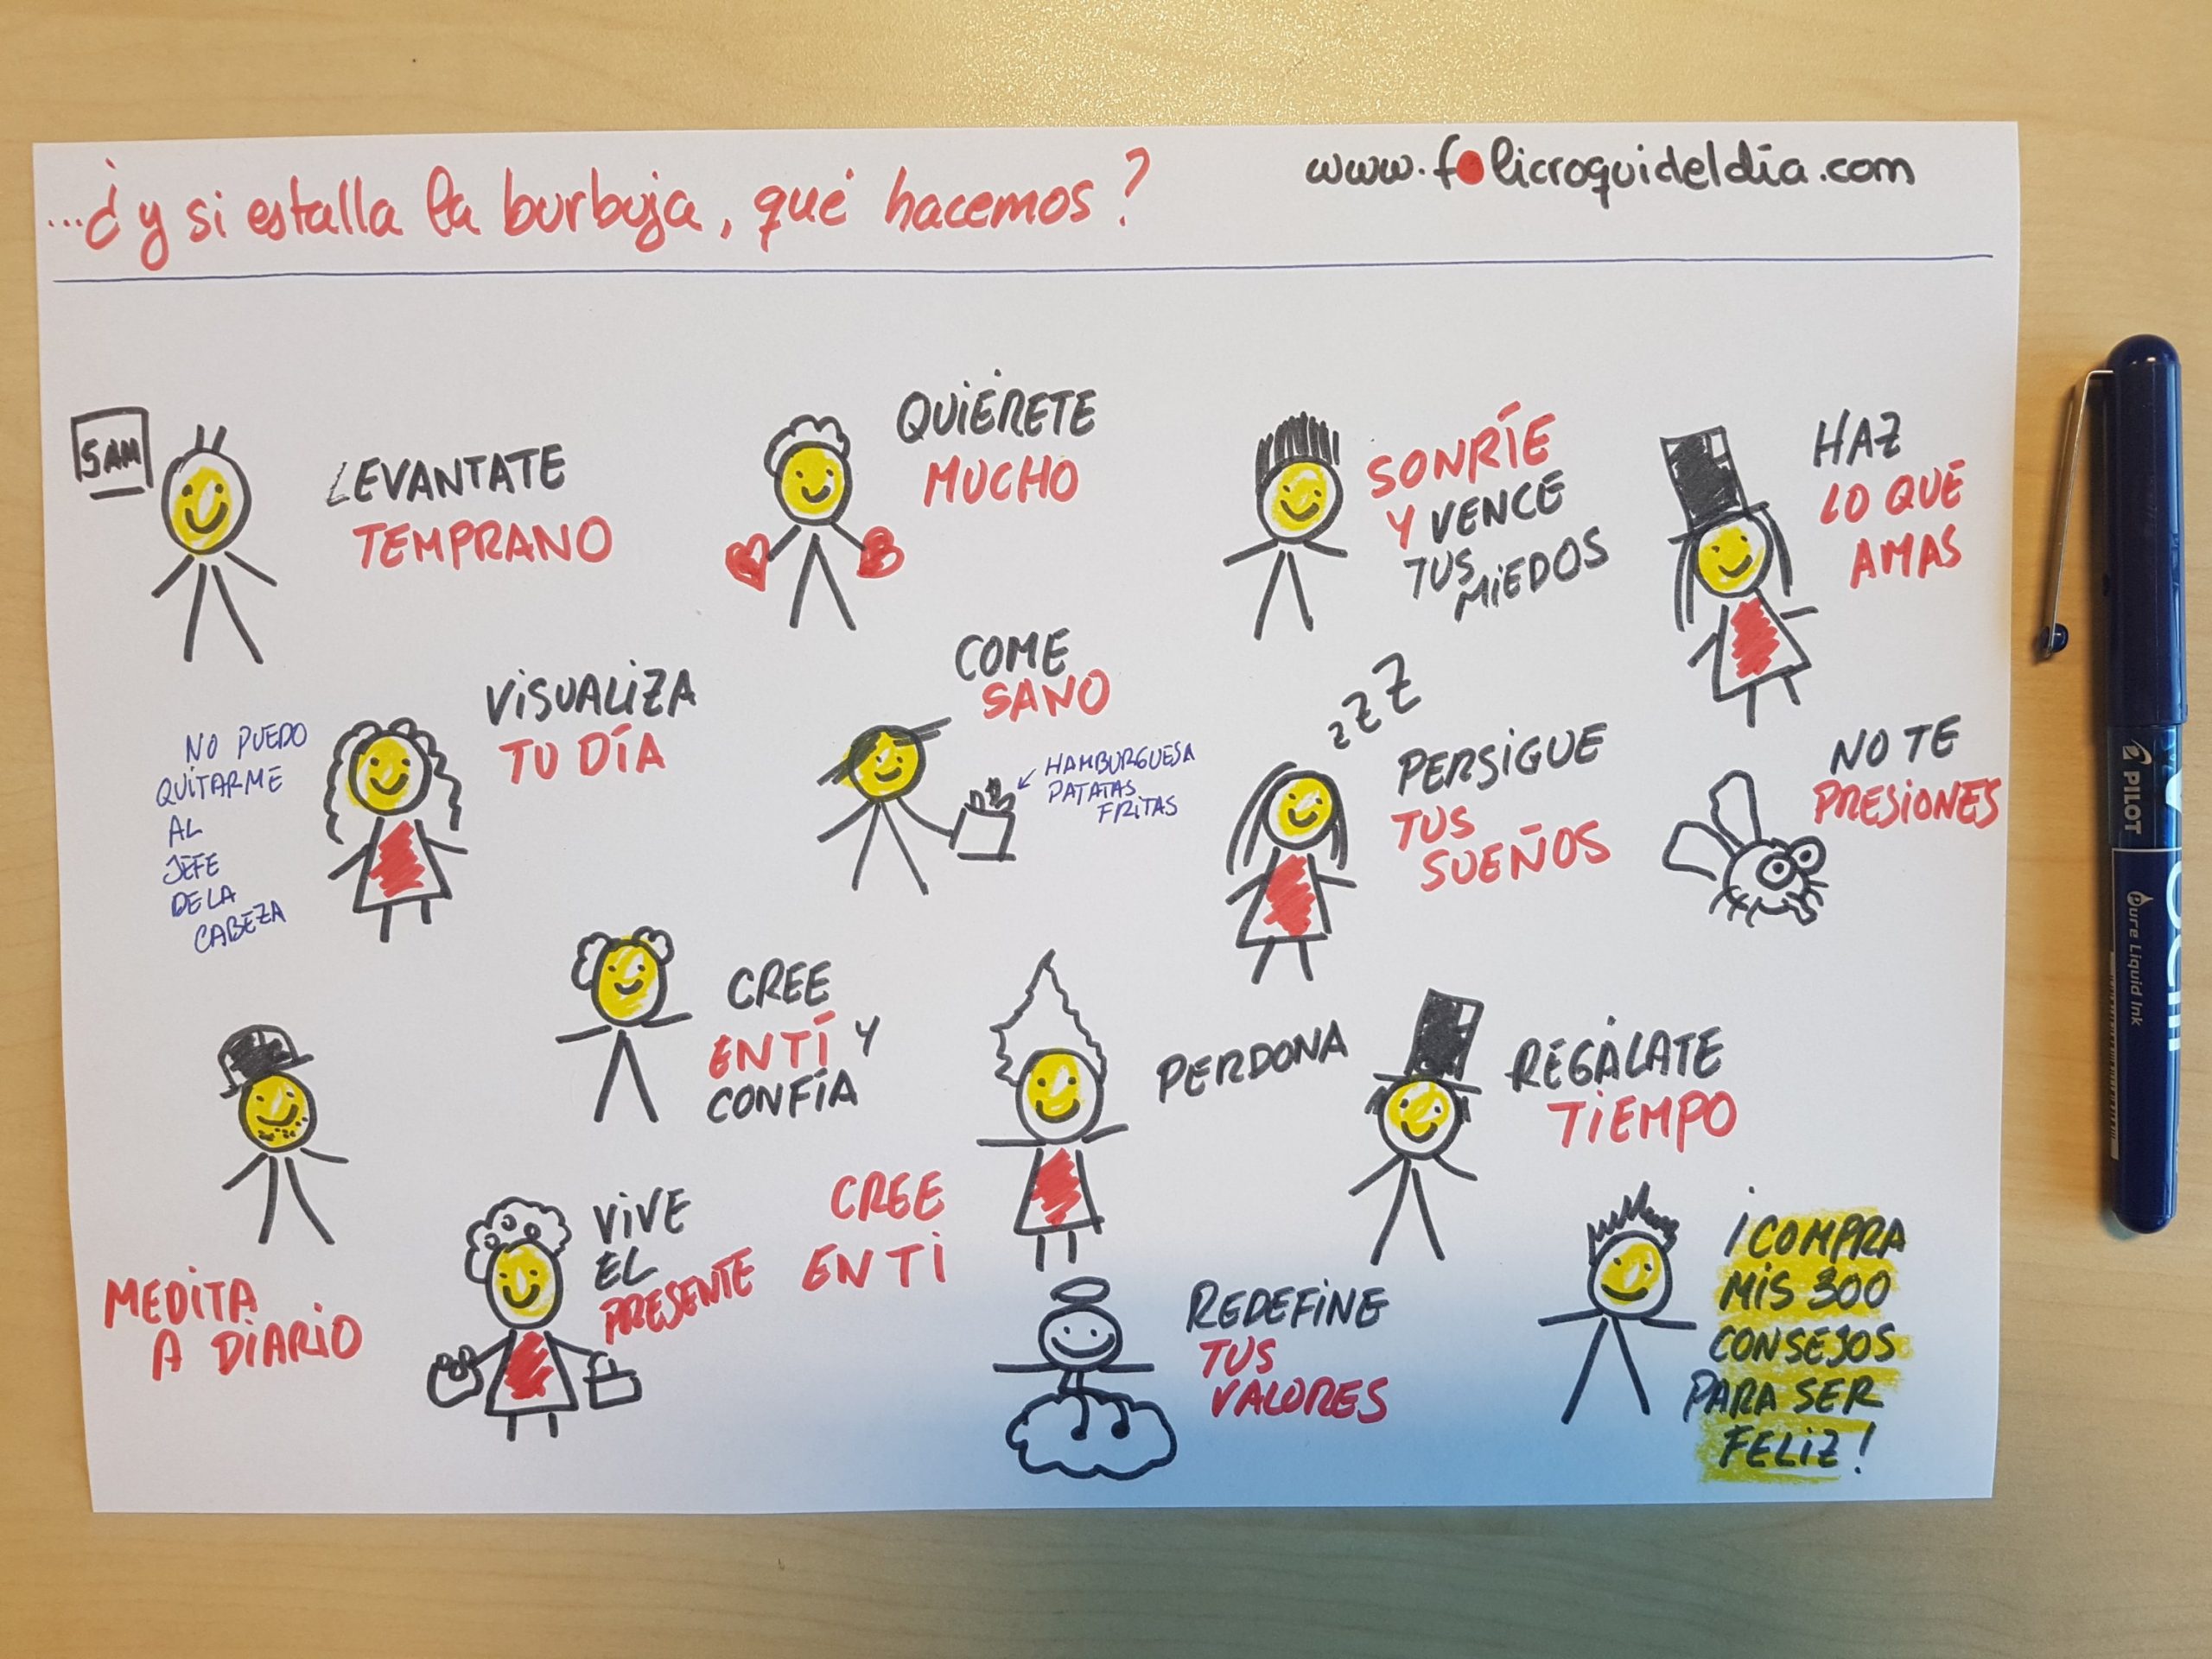 ...¿y si estalla la burbuja, qué hacemos?
www.folicroquideldía.com
5AM
LEVANTATE
TEMPRANO
QUIÉRETE
MUCHO
SONRÍE
Y VENCE
TUS
MIEDOS
HAZ
LO QUE
AMAS
NO PUEDO
QUITARME
AL
JEFE
DE LA
CABEZA
VISUALIZA
TU DÍA
COME
SANO
HAMBURGUESA
PATATAS
FRITAS
zZZ
PERSIGUE
TUS
SUEÑOS
NO TE
PRESIONES
MEDITA
A DIARIO
CREE
EN TÍ Y
CONFÍA
PERDONA
REGÁLATE
TIEMPO
VIVE
EL
PRESENTE
CREE
EN TI
REDEFINE
TUS
VALORES
¡COMPRA
MIS 300
CONSEJOS
PARA SER
FELIZ!
PILOT
Pure Liquid Ink